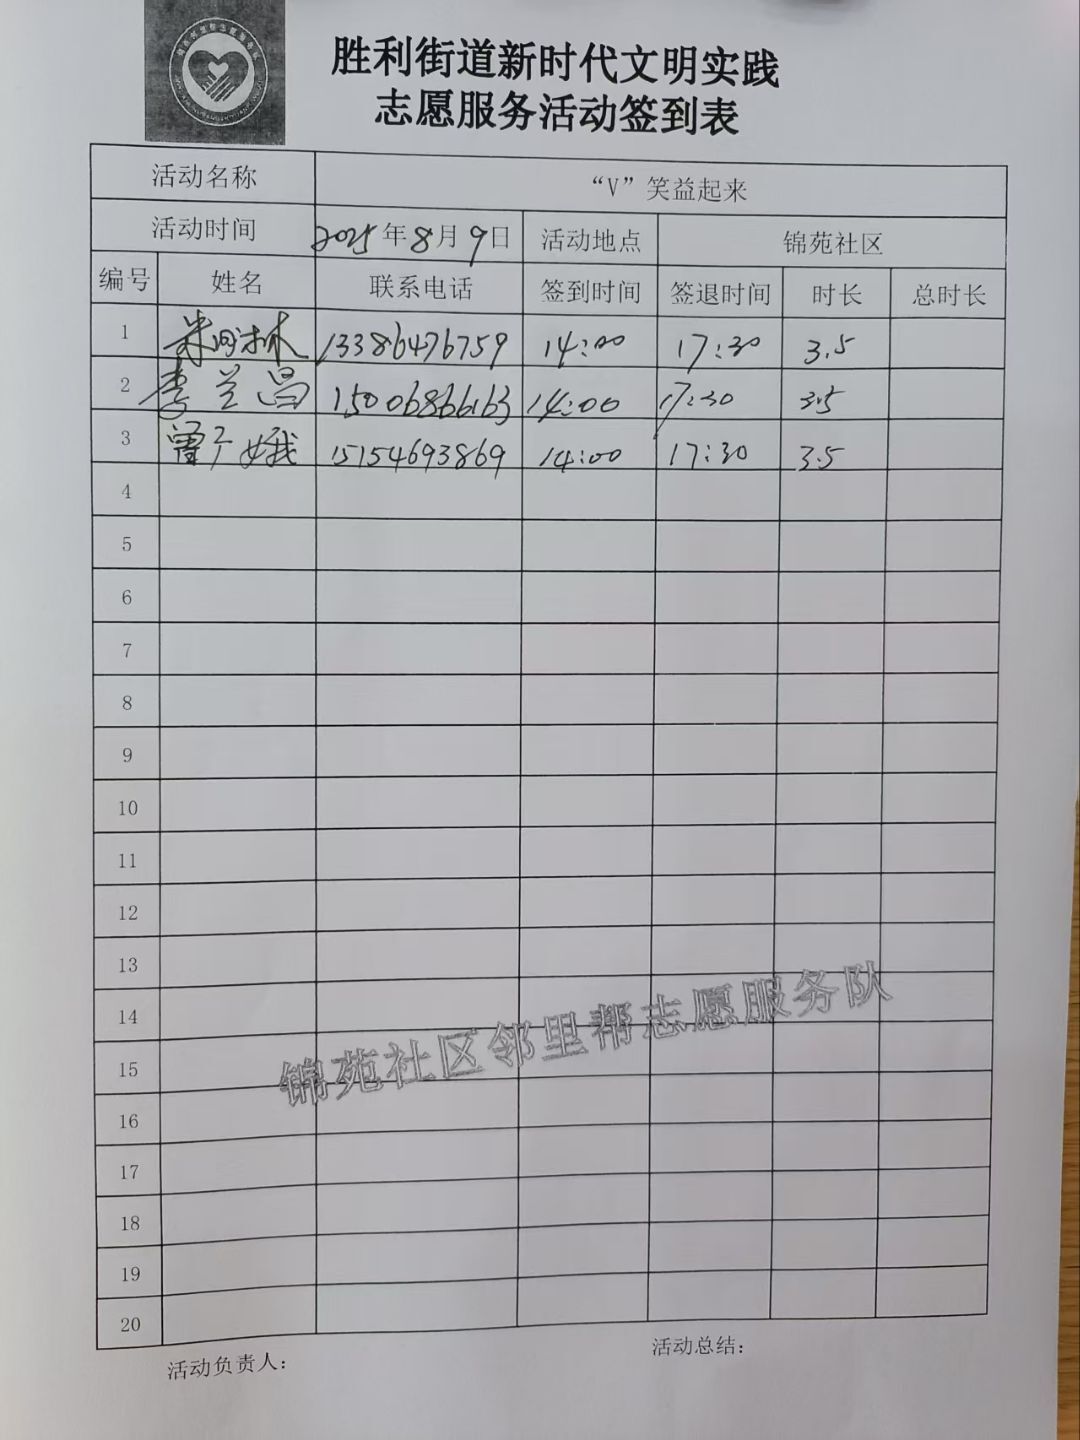 胜利街道新时代文明实践
志愿服务活动签到表
活动名称 “V”笑益起来
活动时间 2025年8月9日 活动地点 锦苑社区
编号 姓名 联系电话 签到时间 签退时间 时长 总时长
1 13386476759 14:00 17:30 3.5
2 李兰昌 15006866163 14:00 17:30 3.5
3 曾广娥 15154693869 14:00 17:30 3.5
4
5
6
7
8
9
10
11
12
13
14
15
16
17
18
19
20
锦苑社区邻里帮志愿服务队
活动负责人：
活动总结：